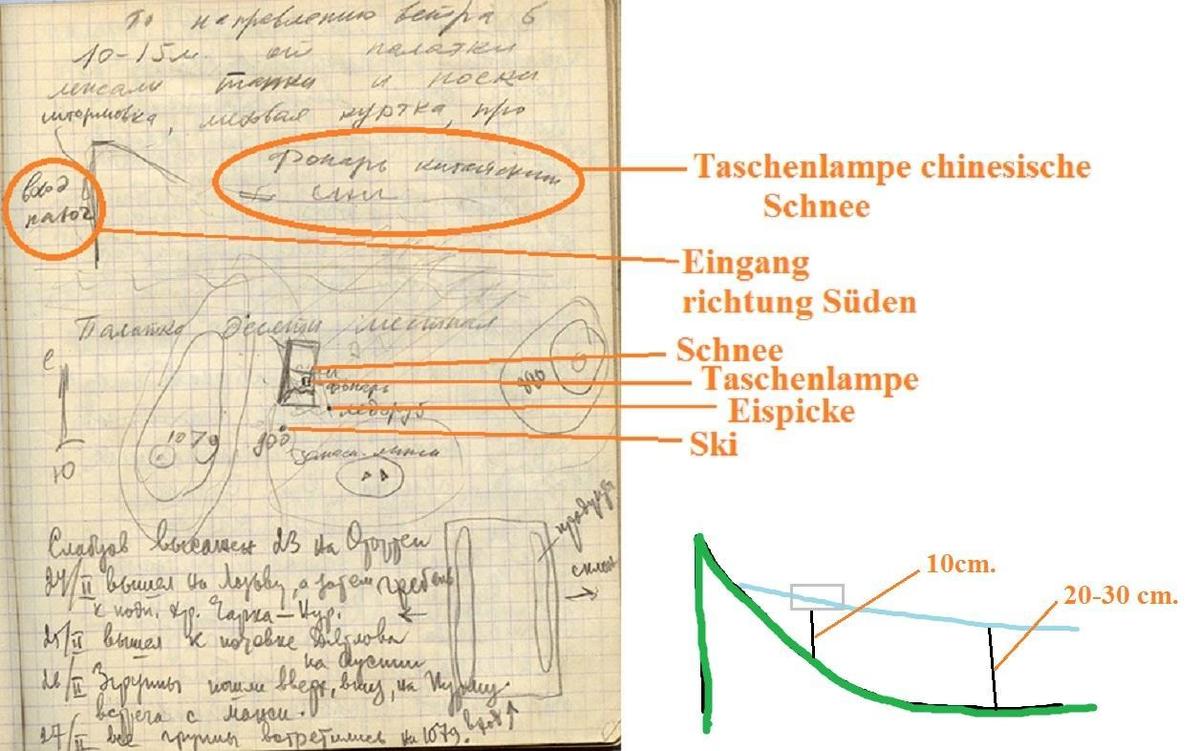 По направлению ветра в
10-15 м. от палатки
лежали тапки и носки
штормовка, меховая куртка, про
Фонарь китайский
вход
Палатка десяти местная
с
фонарь
ледоруб
1079
900
880
Ю
Слабцов высажен 23 на Отортен
24/II вышел на Лозьву, а затем гребень
25/II вышел к ночевке Дятлова
на Ауспии
26/II 3 группы пошли вверх, вниз, на
встреча с манси.
27/II все группы встретились на 1079.
вход
склон
Taschenlampe chinesische
Schnee
Eingang
richtung Süden
Schnee
Taschenlampe
Eispicke
Ski
10cm.
20-30 cm.